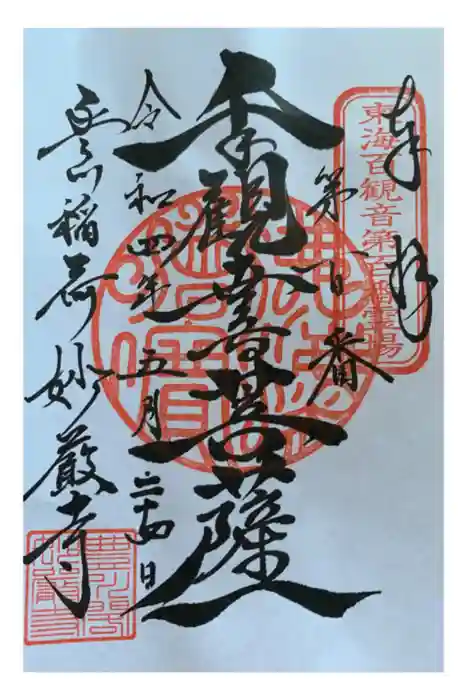 奉拝
東海百観音第百番霊場
第百番
千手觀音菩薩
令和四年五月二十四日
豊川稲荷妙厳寺